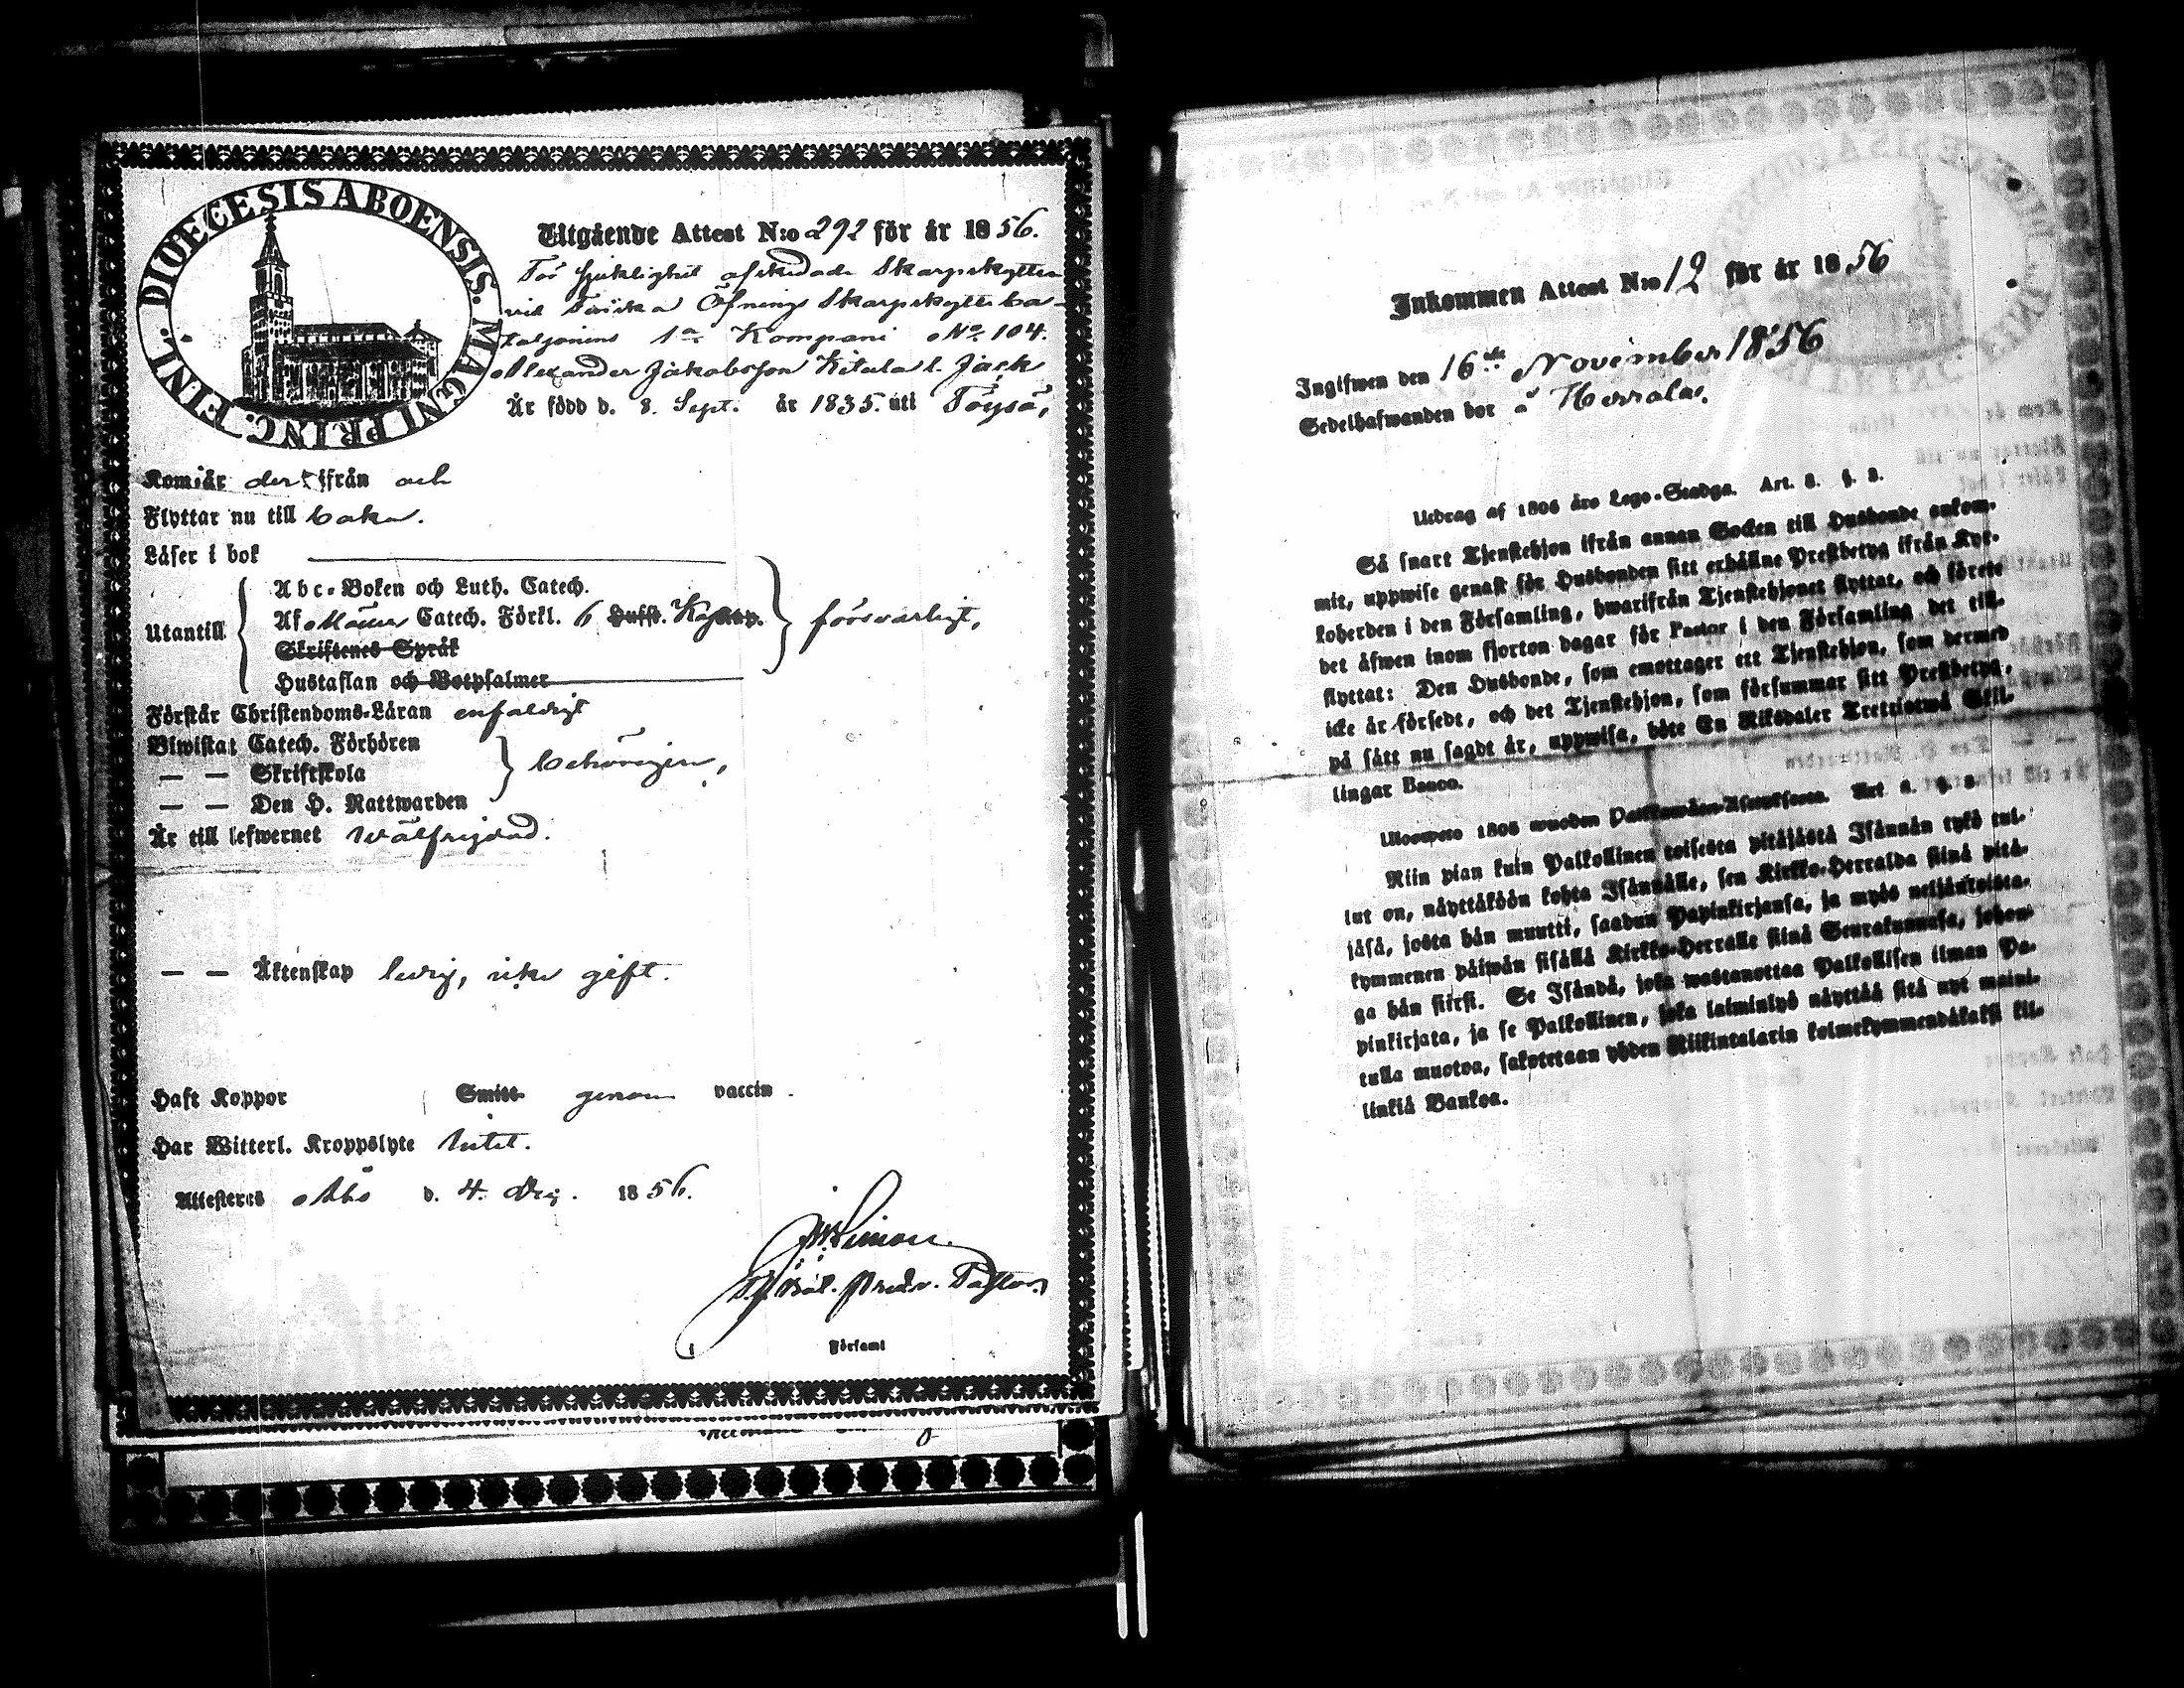 DIOECESIS ABOENSIS. MAGNI PRINC. FINL.
Utgående Attest N:o 292 för år 1856.
För sjuklighet afskedade Skarpskytten
vid Finska Öfnings Skarpskytte ba-
taljonens 1a Kompani No 104.
Alexander Jakobsson Kitula l. Jäck
Är född d. 8. Sept. år 1835. uti Töysä,
Kom i år der ifrån och
Flyttar nu till baka.
Läser i bok
Utantill
Abc-Boken och Luth. Catech.
Af Catech. Förkl. 6 Hufst.
Skriftenes Språk
Hustaflan och Botpsalmer
försvarligt,
Förstår Christendoms-Läran enfaldigt
Biwistat Catech. Förhören
— — Skriftskola
— — Den H. Nattwarden
behörigen,
Är till lefwernet wälfrejdad.
— — Äktenskap ledig, icke gift.
Haft Koppor Smitt genom vaccin.
Har Witterl. Kroppslyte intet.
Attesteras Åbo d. 4. 1856.
Pastor.
Förfaml
Inkommen Attest N:o 12 för år 1856
Ingifwen den 16de November 1856
Sedelhafwanden bor å Herrala.
Utdrag af 1805 års Lego-Stadga. Art. 3. §. 3.
Så snart Tjenstehjon ifrån annan Socken till Husbonde ankom-
mit, uppwise genast för Husbonden sitt erhållne Prestbetyg ifrån Kyr-
koherden i den Församling, hwarifrån Tjenstehjonet flyttat, och förete
det äfwen inom fjorton dagar för Pastor i den Församling det till-
flyttat: Den Husbonde, som emottager ett Tjenstehjon, som dermed
icke är försedt, och det Tjenstehjon, som försummar sitt Prestbetyg,
på sätt nu sagdt är, uppwisa, böte En Riksdaler Trettiotwå Skil-
lingar Banco.
Uloswoto 1805 wuoden Art 3. §. 3
Niin pian kuin Palkollinen toisesta pitäjästä Isännän tykö tul-
lut on, näyttäköön kohta Isännälle, sen Kirkko-Herralda siinä pitä-
jäsä, josta hän muutti, saadun Papinkirjansa, ja myös neljäntoista-
kymmenen päiwän sisällä Kirkko-Herralle siinä Seurakunnasa, johon-
ga hän siirsi. Se Isändä, joka wastanottaa Palkollisen ilman Pa-
pinkirjata, ja se Palkollinen, joka laiminlyö näyttää sitä nyt maini-
tulla muotoa, sakotetaan yhden Riikintalarin kolmekymmendäkaksi kil-
linkiä Bankoa.